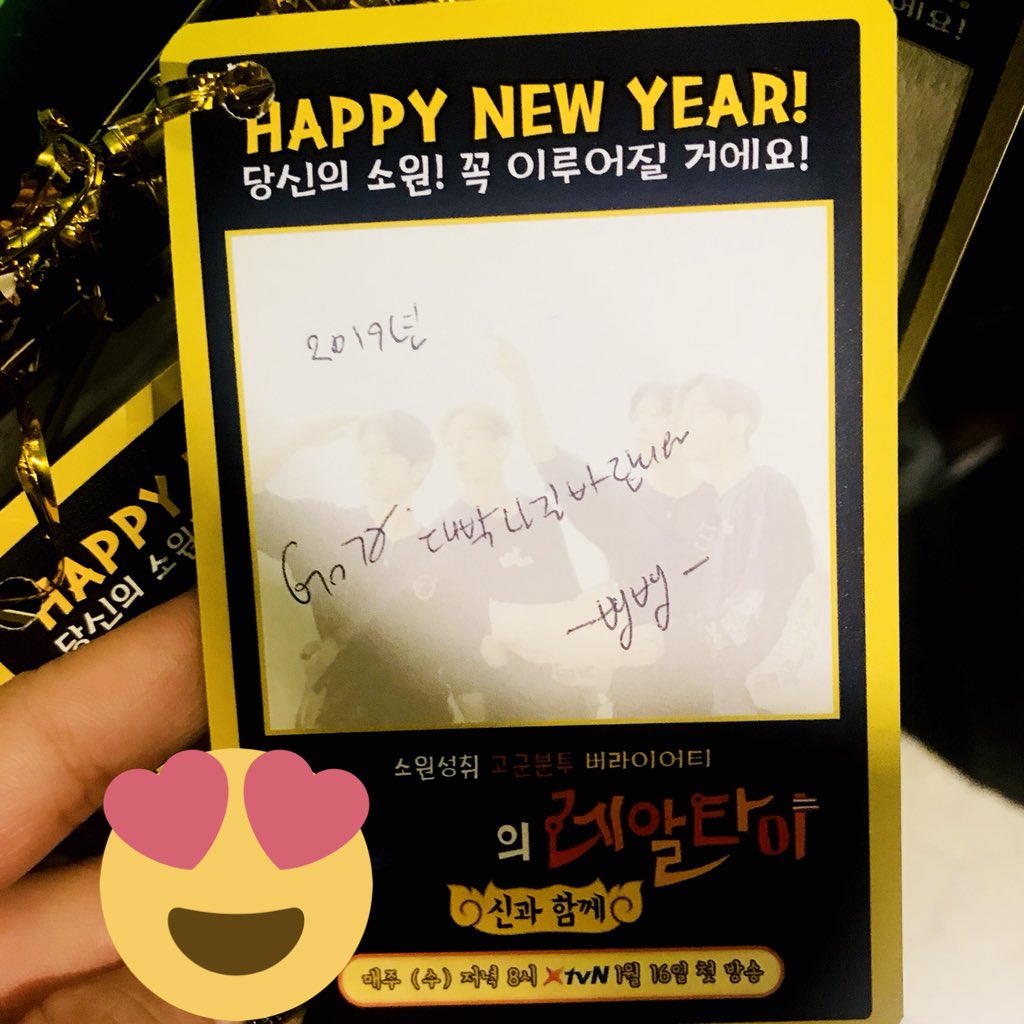 HAPPY NEW YEAR!
당신의 소원! 꼭 이루어질 거에요!
2019년
대박나길 바랍니다
소원성취 고군분투 버라이어티
의 레알타이
신과 함께
매주 (수) 저녁 8시 XtvN 1월 16일 첫 방송
HAPPY
당신의 소원
에요!